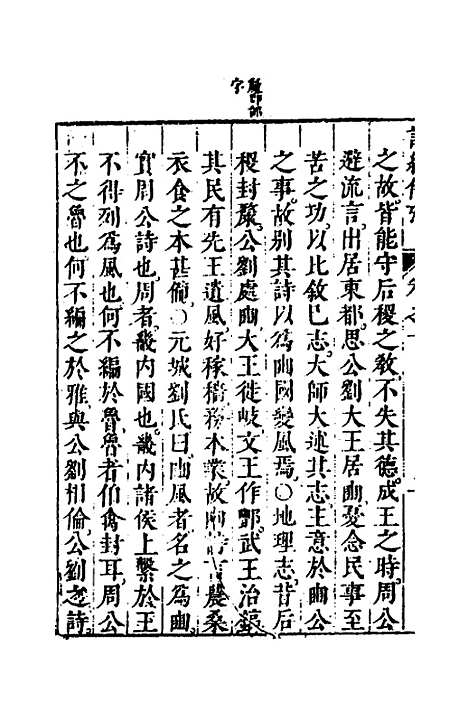 釐即邰
字
之故皆能守后稷之教不失其德成王之時周公
避流言出居東都思公劉大王居豳憂念民事至
苦之功以比敘己志大師大述其志主意於豳公
之事故别其詩以爲豳國變風焉○地理志昔后
稷封釐公劉處豳大王徙岐文王作酆武王治鎬
其民有先王遺風好稼穡務本業故豳詩言農桑
衣食之本甚備○元城劉氏曰豳風者名之爲豳
實周公詩也周者畿内國也畿内諸侯上繫於王
不得列爲風也何不編於魯魯者伯禽封耳周公
不之魯也何不編之於雅與公劉相倫公劉之詩